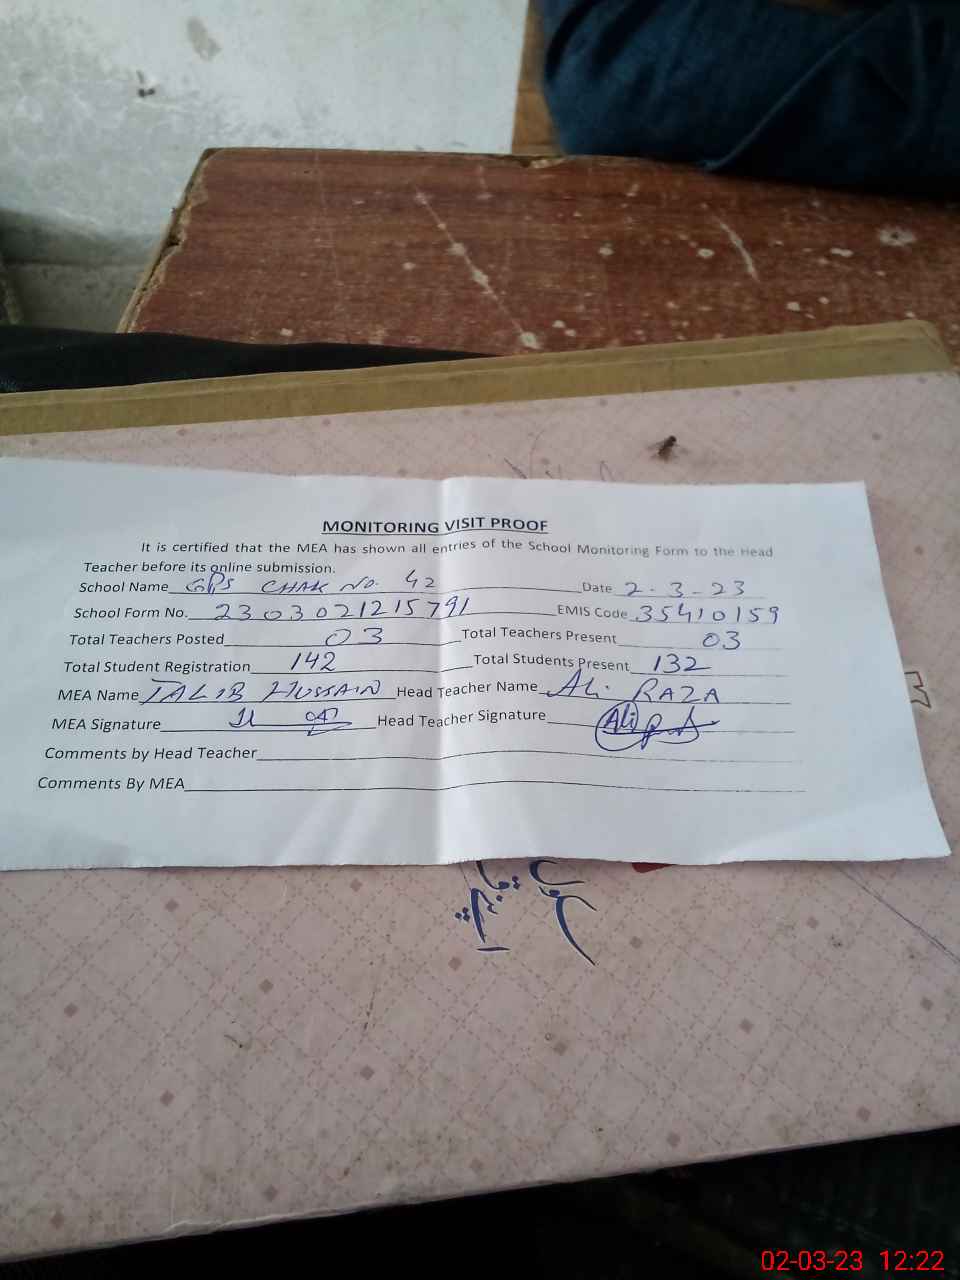 MONITORING VISIT PROOF
It is certified that the MEA has shown all entries of the School Monitoring Form to the Head
Teacher before its online submission.
School Name GPS CHAK NO. 42 Date 2-3-23
School Form No. 2303021215791 EMIS Code 35410159
Total Teachers Posted 03 Total Teachers Present 03
Total Student Registration 142 Total Students Present 132
MEA Name TALIB HUSSAIN Head Teacher Name Ali RAZA
MEA Signature 047 Head Teacher Signature Ali
Comments by Head Teacher
Comments By MEA
02-03-23 12:22